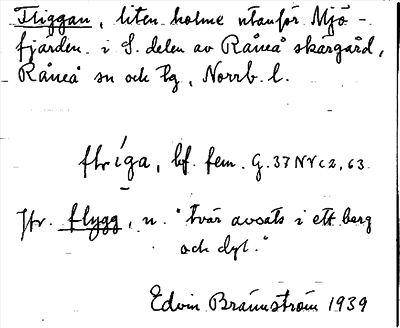 Fliggan, liten holme utanför Mjö-
fjärden i S. delen av Råneå skärgård,
Råneå sn och tg, Norrb. l.
flriga, bf. fem. G. 37 NYC2, 63.
Jfr. flygg, n. "tvär avsats i ett berg
och dyl."
Edvin Brännström 1939